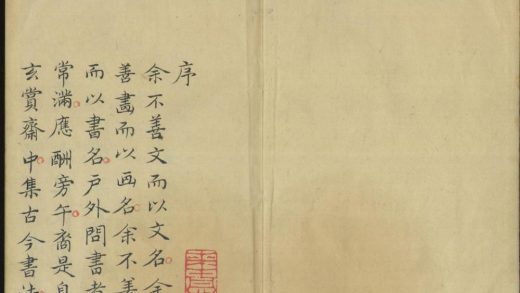 序
余不善文而以文名余
善畫而以画名余不善
而以書名戶外問書者
常滿應酬旁午裔是
玄賞齋中集古今書法